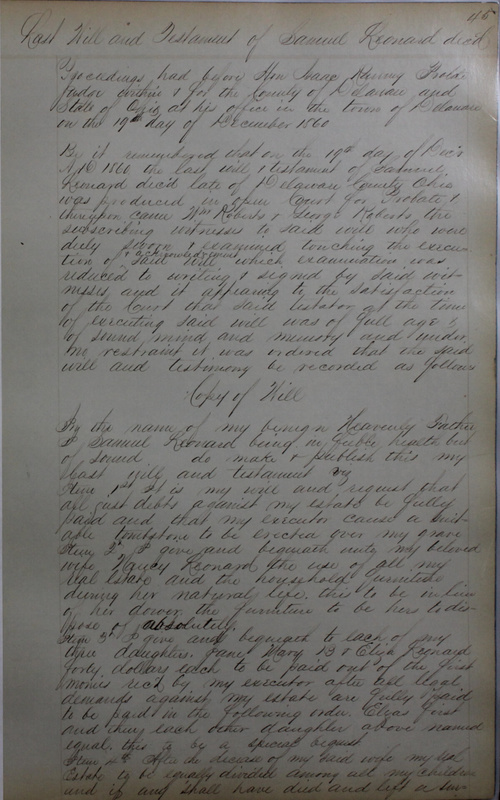 45
Last Will and Testament of Samuel Leonard decd
Proceedings had before Hon Isaac Probate
within & for the County of Delaware and
State of Ohio at his office in the town of Delaware
on the 19th day of December 1860
Be it remembered that on the 19th day of Decr
AD 1860 the last will & testament of Samuel
Leonard decd late of Delaware County Ohio
was produced in open Court for Probate &
thereupon came Wm Roberts & George Roberts the
subscribing witnesses to said will who were
duly sworn & examined touching the execu-
& acknowledgement
tion of said will which examination was
reduced to writing & signed by said wit-
nesses, and it appearing to the satisfaction
of the Court that said testator at the time
of executing said will was of full age &
of sound mind and memory and under
no restraint it was ordered that the said
will and testimony be recorded as follows
Copy of Will
In the name of my benign Heavenly Father
I Samuel Leonard being in feeble health but
of sound do make & publish this my
Last will and testament
Item 1st It is my will and request that
all just debts against my estate be fully
paid and that my executor cause a suit-
able tombstone to be erected over my grave
Item 2d I give and bequeath unto my beloved
wife Nancy Leonard the use of all my
real Estate and the household furniture
during her natural life. this to be in lieu
of her dower the furniture to be hers to dis-
pose of absolutely.
Item 3d I give and bequeath to each of my
three daughters. Jane Mary B & Eliza Leonard
forty dollars each to be paid out of the first
monies recd by my executor after all legal
demands against my estate are fully paid
to be paid in the following order. Elizas first
and then each other daughter above named
equal. this to be a special bequest
Item 4th At the decease of my said wife my real
Estate to be equally divided among all my children
and if any shall have died and left a sur-